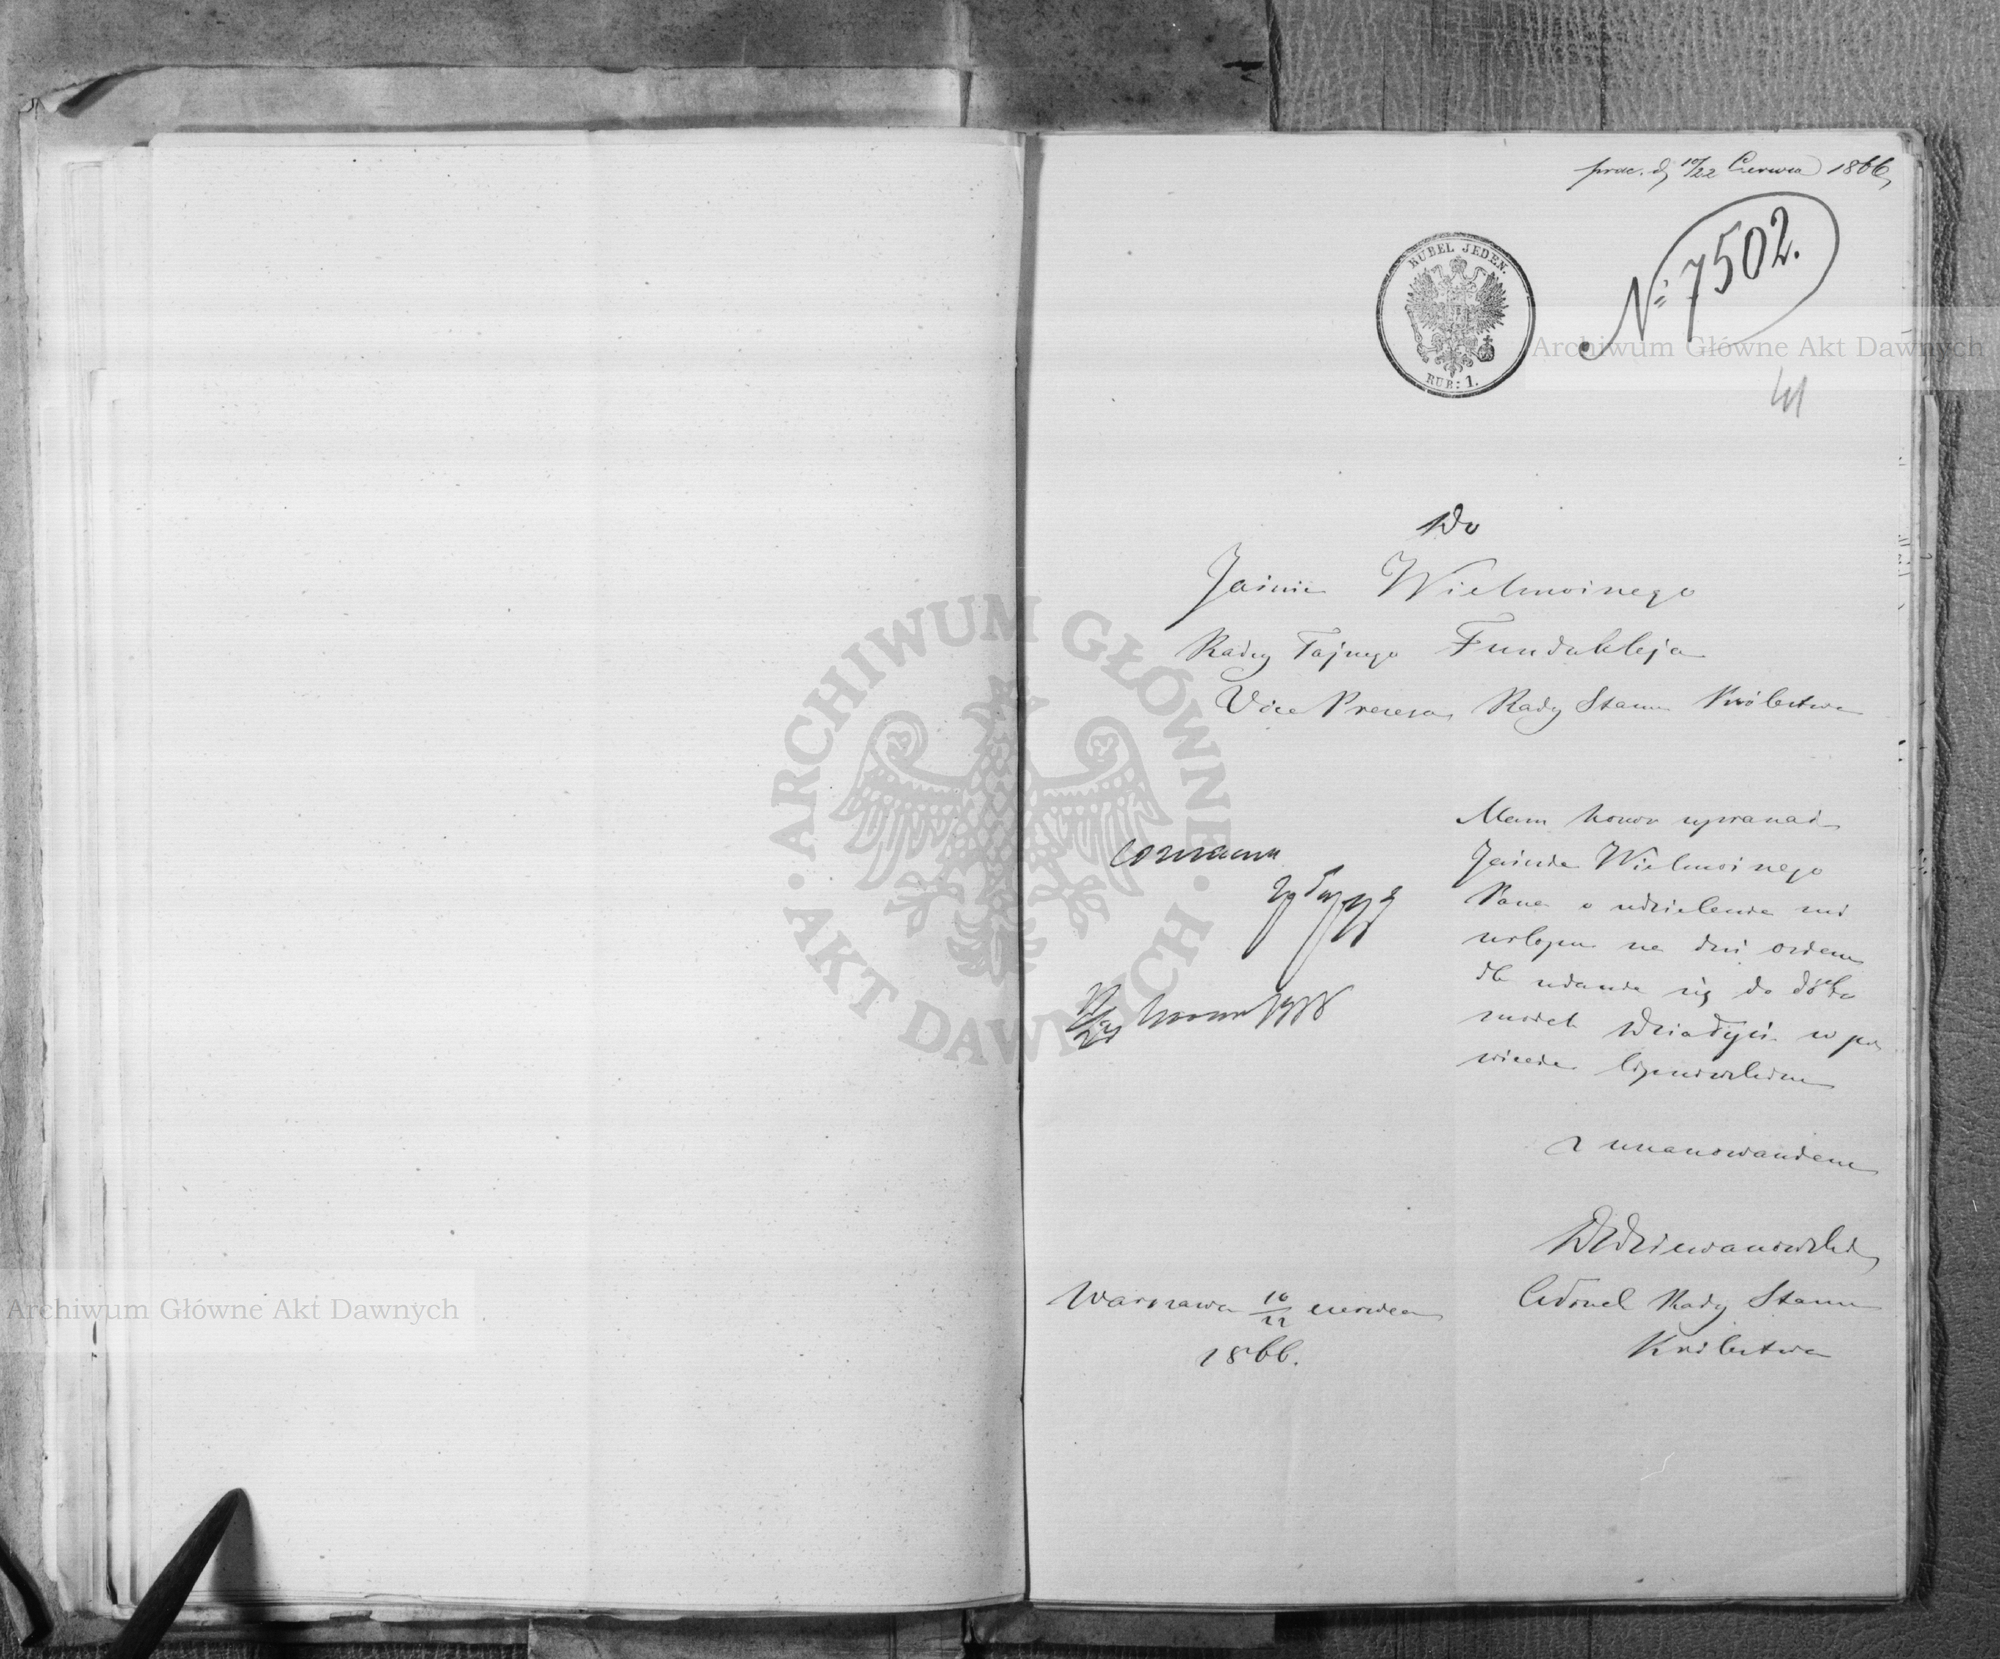 prae. d. 10/22 Czerwca 1866
RUBEL JEDEN.
RUB: 1.
№ 7502.
Archiwum Główne Akt Dawnych
41
Do
Jaśnie Wielmożnego
Radcy Tajnego Fundukleja
Vice Prezesa Rady Stanu Królestwa
Mam honor upraszać
Jaśnie Wielmożnego
Pana o udzielenie mi
urlopu na dni osiem
dla udania się do dóbr
moich Działyń w po
wiecie lipnowskim
z uszanowaniem
Dziewanowski
Członek Rady Stanu
Królestwa
Warszawa 10/22 czerwca
1866.
ARCHIWUM GŁÓWNE AKT DAWNYCH
Archiwum Główne Akt Dawnych